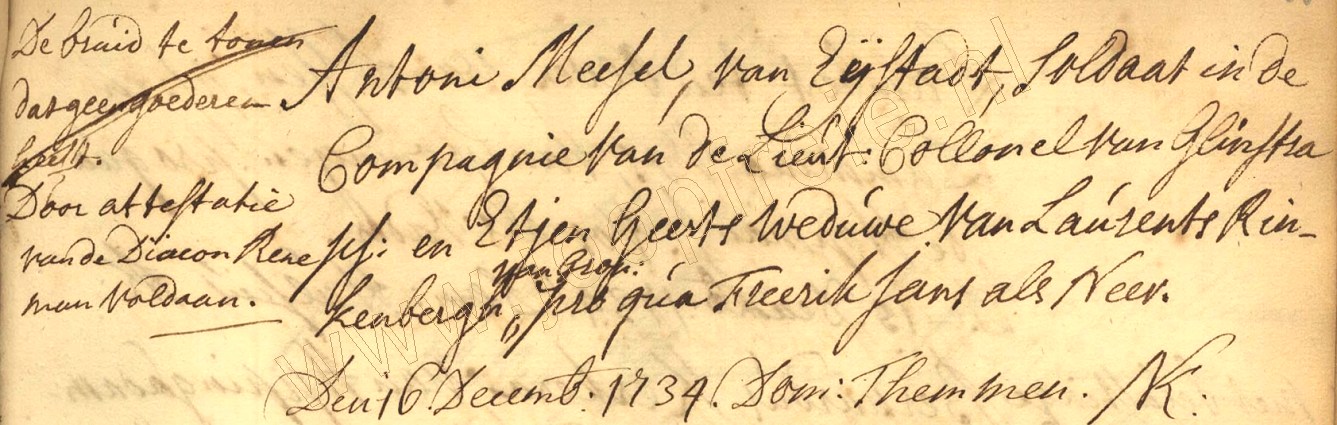 De bruid te tonen
dat geen goederen
heeft.
Door attestatie
van de Diacon Rene
man voldaan.
Antoni Meesel, van Eÿstadt, Soldaat in de
Compagnie van de Lieut: Collonel van Glinstra
ps: en Etjen Geerts Weduwe van Laurents Rin-
van Gron:
kenbergh, pro qua Freerik Jans als Neev.
Den 16 Decemb. 1734. Dom: Themmen. NK:
www.jooptroje.nl